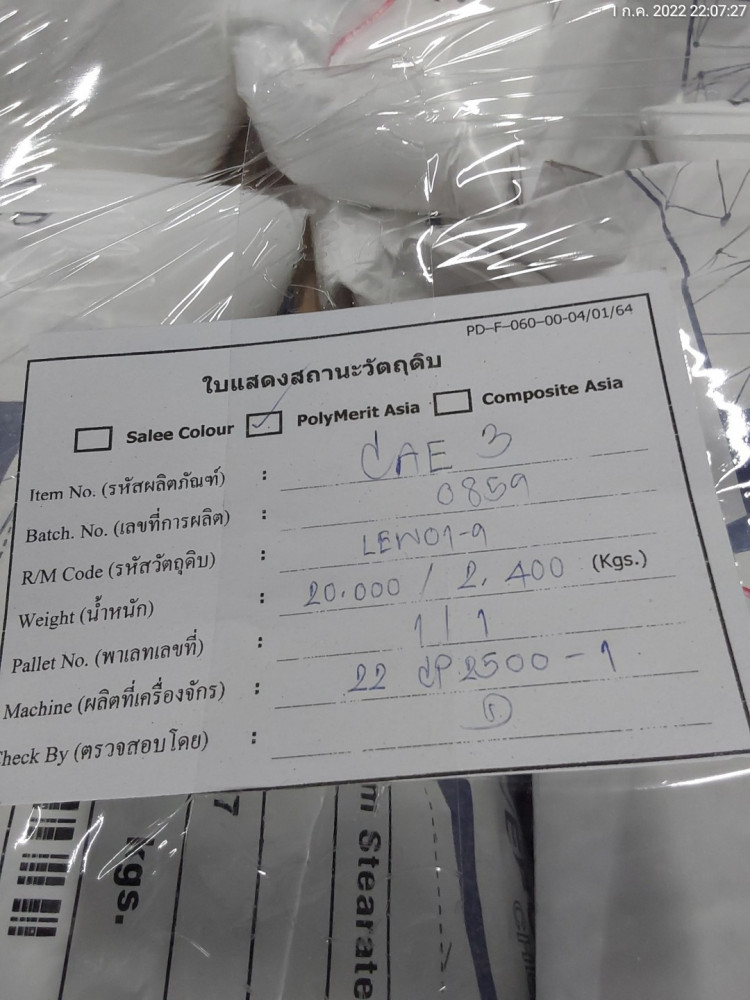 1 ก.ค. 2022 22:07:27
PD-F-060-00-04/01/64
ใบแสดงสถานะวัตถุดิบ
Salee Colour PolyMerit Asia Composite Asia
Item No. (รหัสผลิตภัณฑ์) : CAE 3
Batch. No. (เลขที่การผลิต) : 0859
R/M Code (รหัสวัตถุดิบ) : LEW01-9
Weight (น้ำหนัก) : 20.000 / 2,400 (Kgs.)
Pallet No. (พาเลทเลขที่) : 1 / 1
Machine (ผลิตที่เครื่องจักร) : 22 CP 2500 - 1
Check By (ตรวจสอบโดย) :
kgs.
7
m Stearate